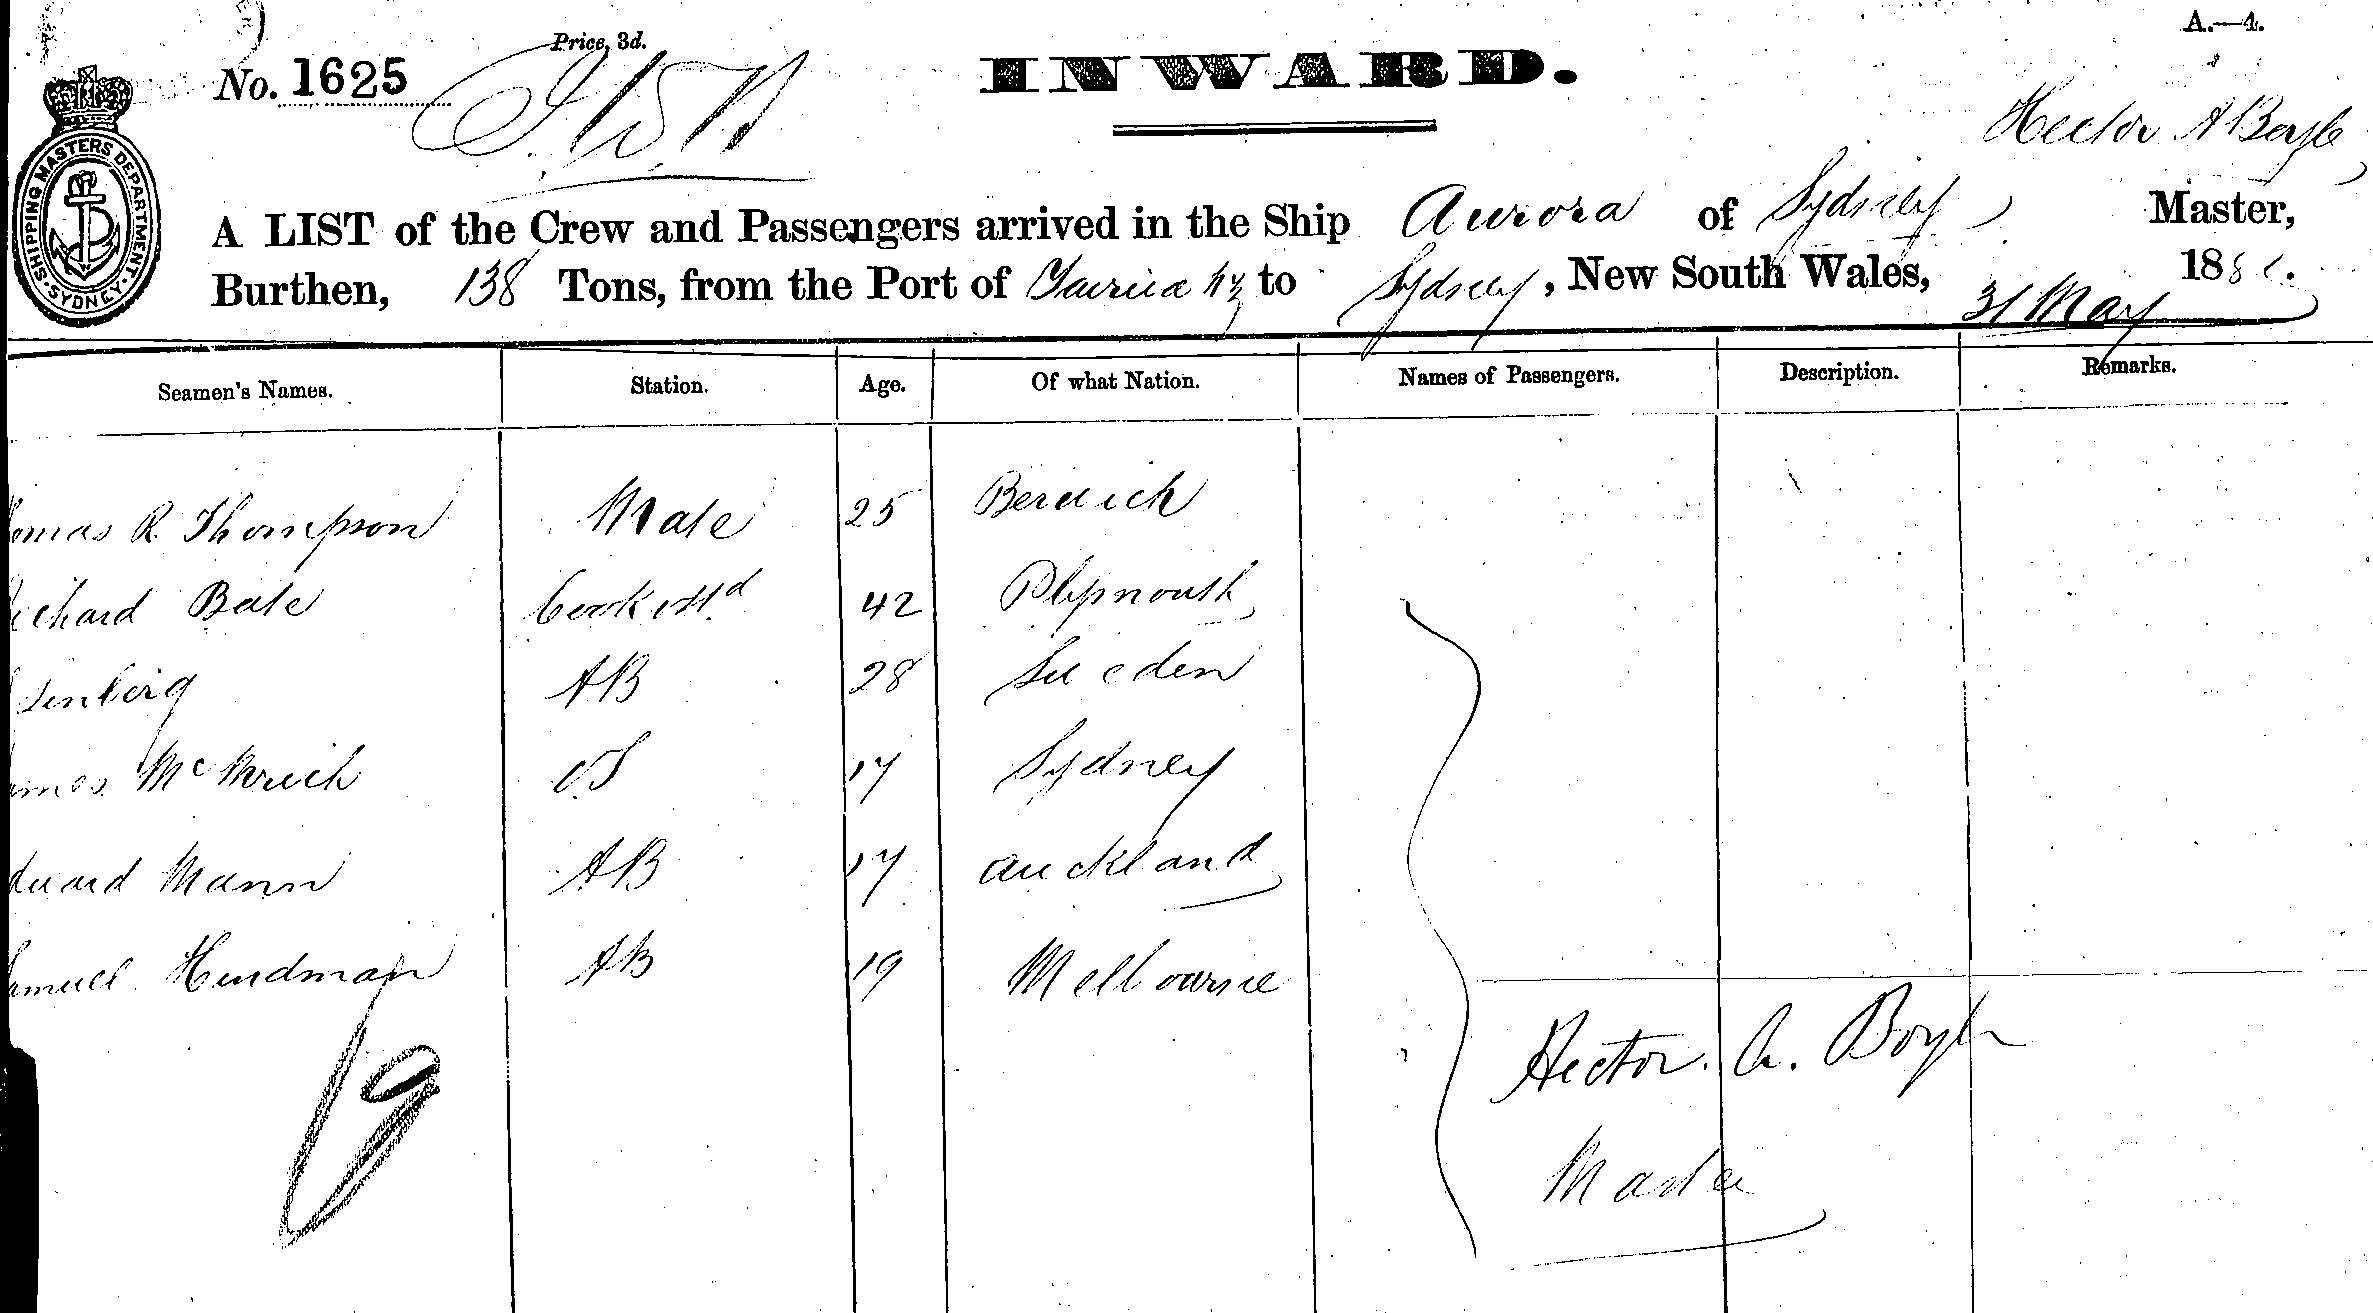 A.—4.
Price, 3d.
No. 1625
INWARD.
SHIPPING MASTERS DEPARTMENT. SYDNEY.
Hector A Boyle
A LIST of the Crew and Passengers arrived in the Ship Aurora of Sydney, Master,
Burthen, 138 Tons, from the Port of NZ to Sydney, New South Wales, 31 May 188
Seamen's Names. Station. Age. Of what Nation. Names of Passengers. Description. Remarks.
omas R. Thompson Mate 25 Berwick
ichard Bate Cook & Std 42 Plymouth
senberg AB 28 Sweden
ames OS 17 Sydney
dward Mann AB 17 Auckland
amuel Hindman AB 19 Melbourne
Hector. A. Boyle
Master